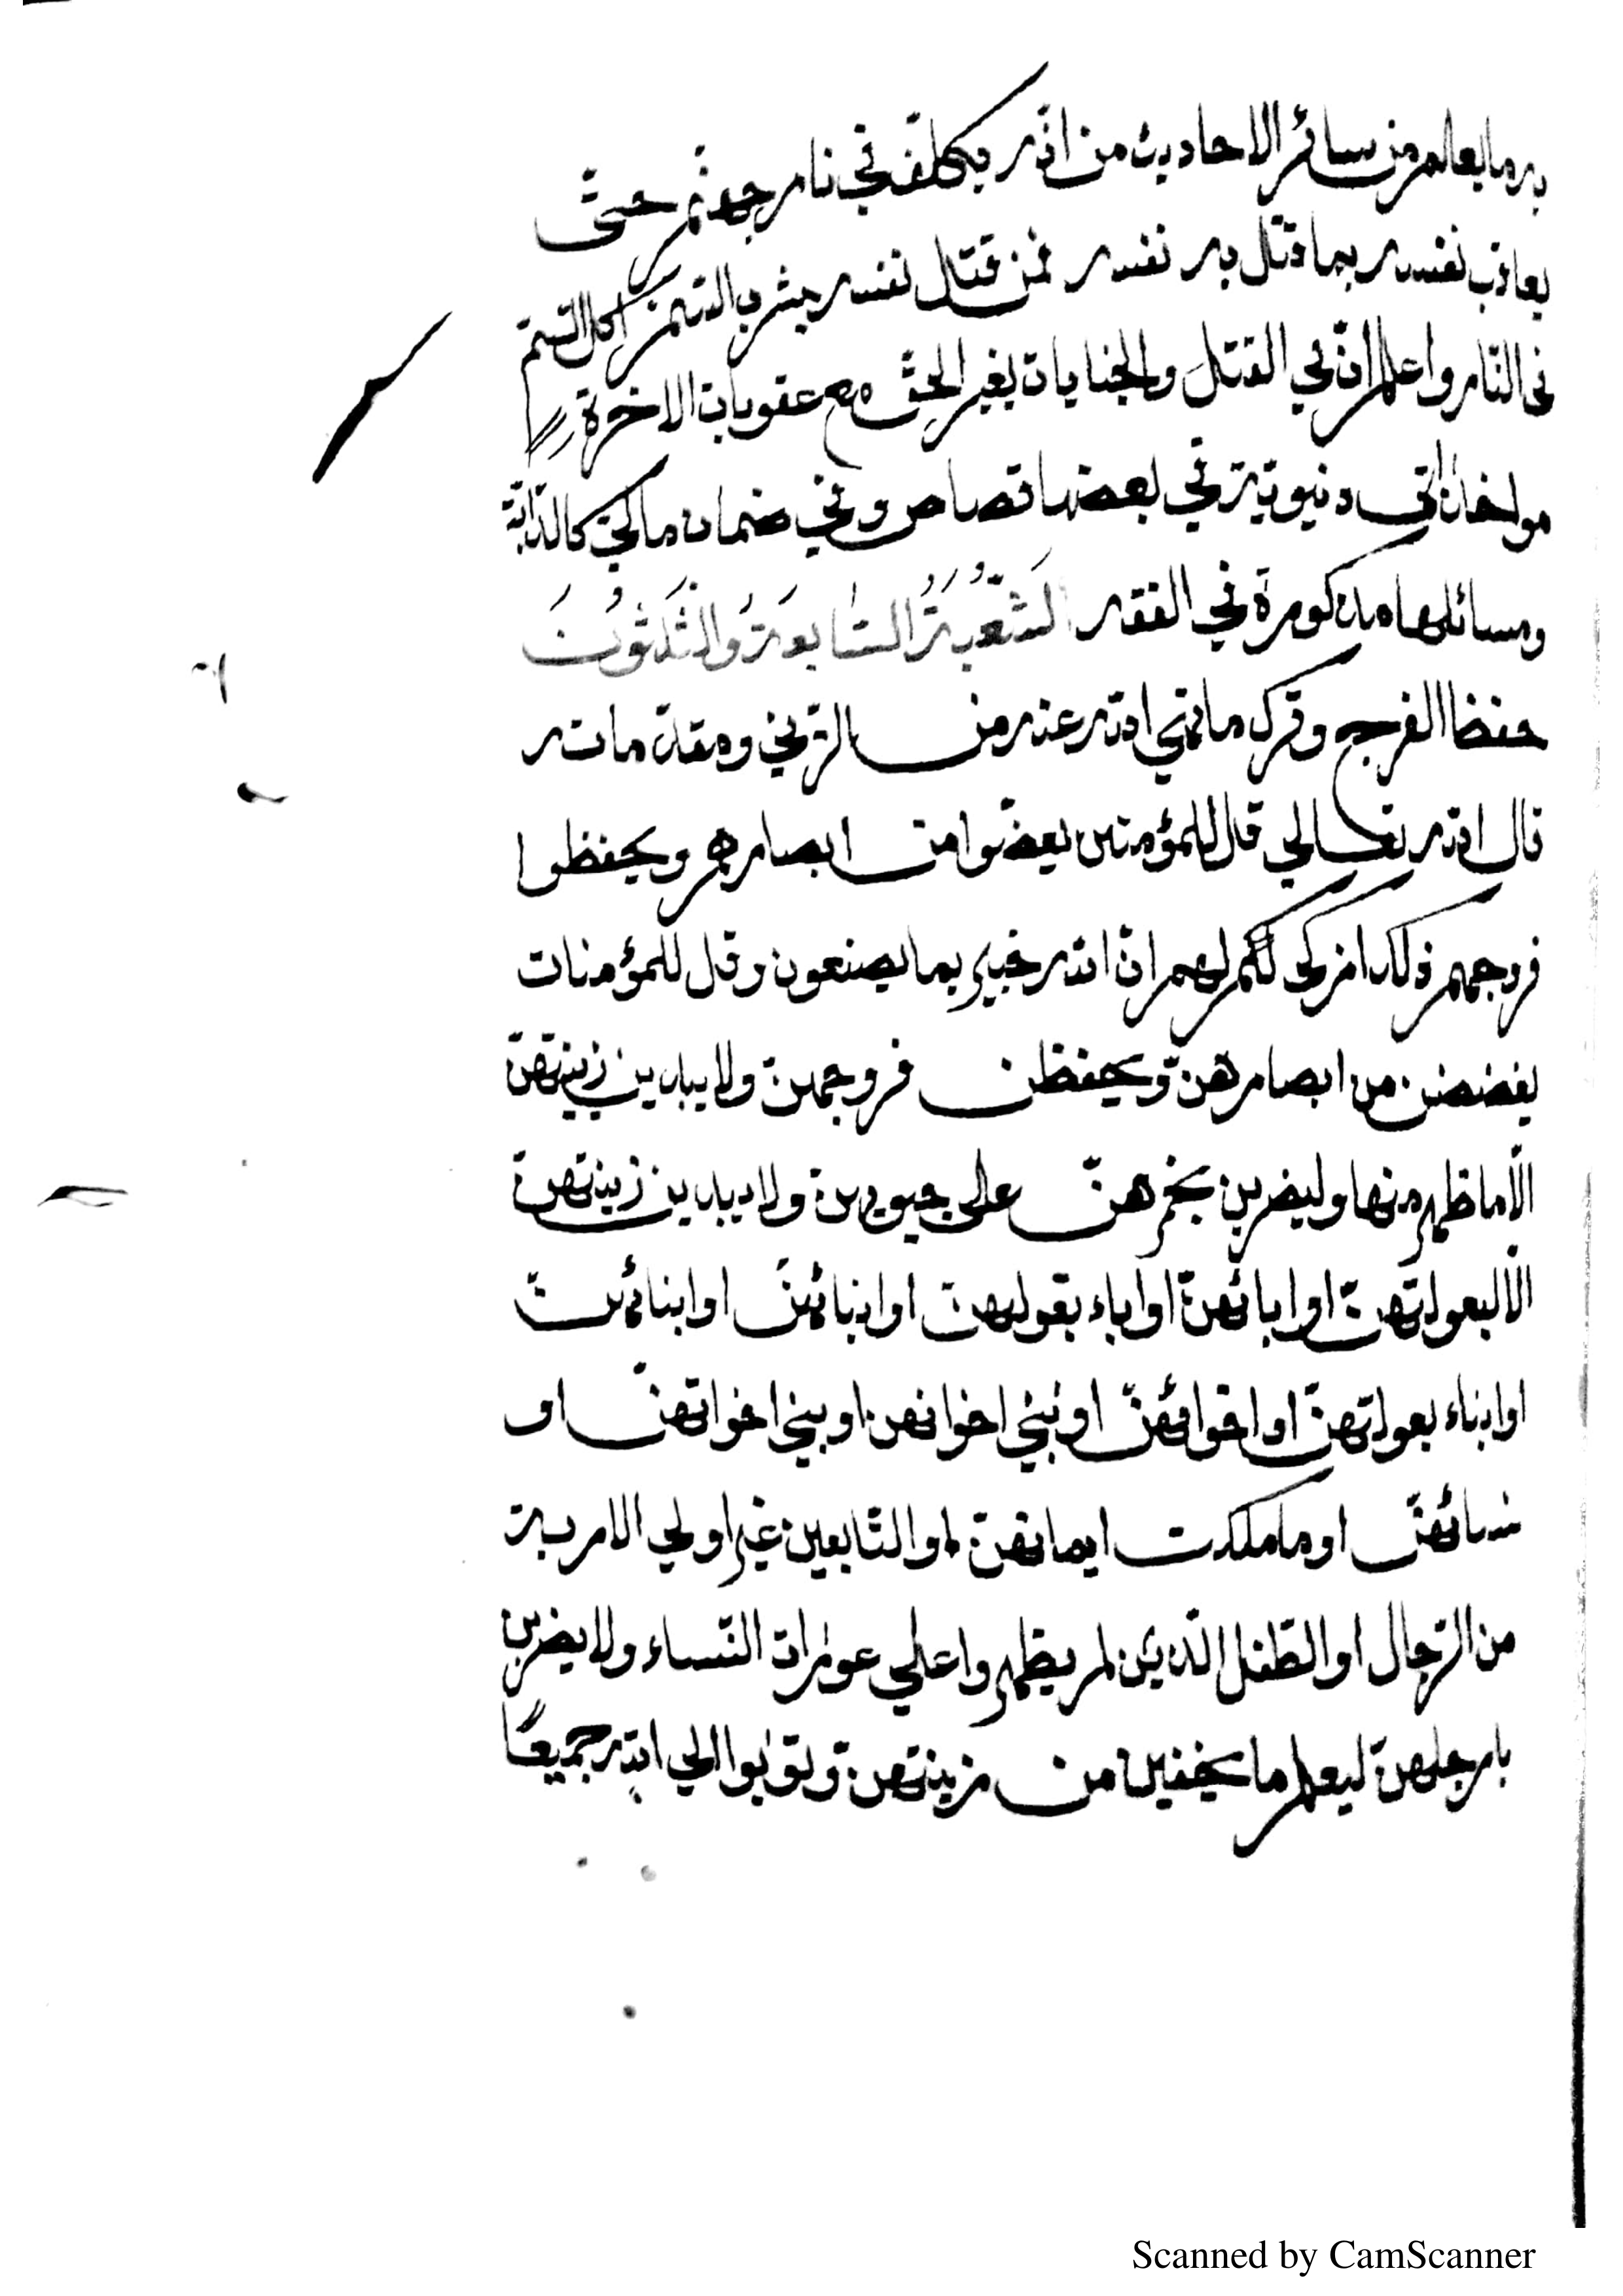 به ما يعلم من سائر الاحاديث من انّه يكلّف في نار جهنّم حتّى
يعاذب نفسه بما قتل به نفسه فمن قتل نفسه يشرب السّمّ اكل السّمّ
في النّار واعلم انّ في القتل والجنايات بغير الحقّ مع عقوبات الاخرة
مواخذاتى دنيويّة في بعضها قصاص وفي ضمان مالي كالدّابّة
ومسائلها مذكورة في الفقه الشّعبة السّابعة والثّلثون
حفظ الفرج وترك ما نهى الله عنه من الزّنى ومقدّماته
قال الله تعالى قل للمؤمنين يغضّوا من ابصارهم ويحفظوا
فروجهم ذلك ازكى لكم لهم انّ الله خبير بما يصنعون وقل للمؤمنات
يغضضن من ابصارهنّ ويحفظن فروجهنّ ولا يبدين زينتهنّ
الّا ما ظهر منها وليضربن بخمرهنّ على جيوبهنّ ولا يبدين زينتهنّ
الّا لبعولتهنّ او ابائهنّ او اباء بعولتهن او ابنائهنّ او ابنائهنّ
او ابناء بعولتهنّ او اخوانهنّ او بني اخوانهن او بني اخواتهنّ او
نسائهنّ او ما ملكت ايمانهنّ او التّابعين غير اولي الاربة
من الرّجال او الطّفل الّذين لم يظهروا علي عورات النّساء ولا يضربن
بارجلهنّ ليعلم ما يخفين من زينتهنّ وتوبوا الي الله جميعًا
Scanned by CamScanner